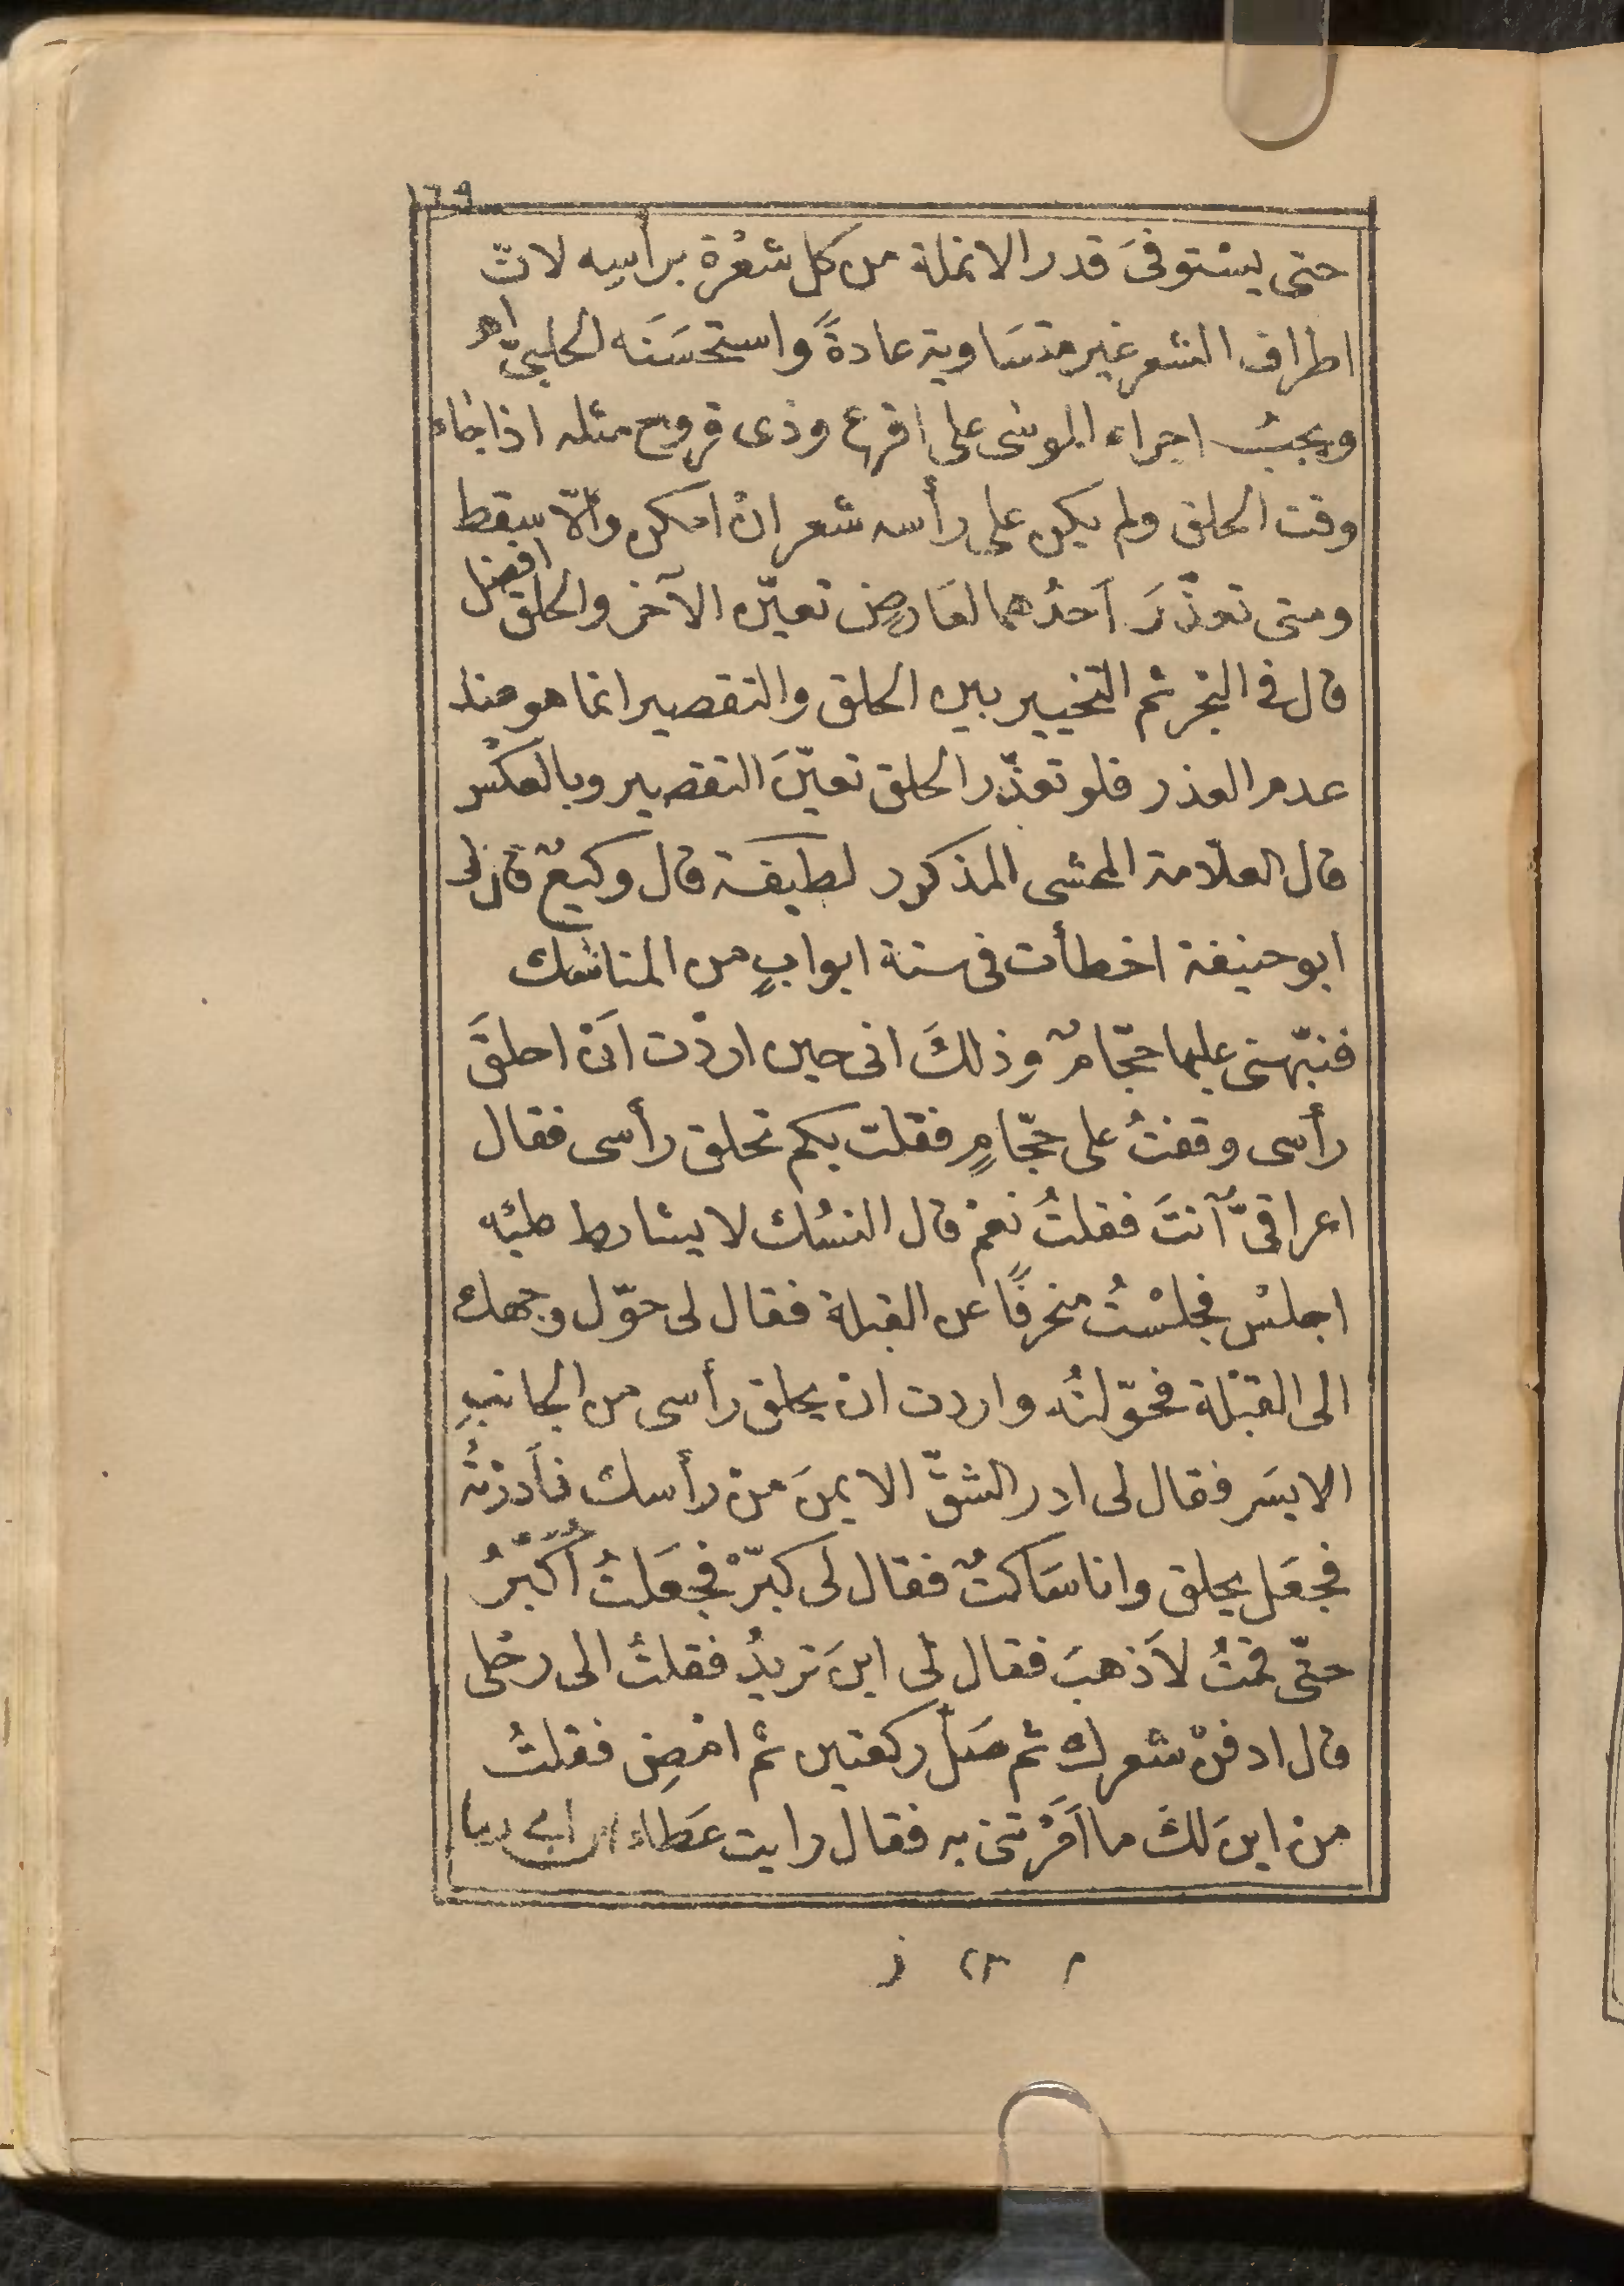 ١٦٩
حتى يستوفىَ قدر الانملة من كل شعْرة برأسِه لانّ
اطراف الشعر غير متسَاوية عادةً واستحسَنَه الحلبىّ اهـ
ويجبُ اجراء الموسٰى على اقرع وذى قروح مثله اذا جاء
وقت الحلق ولم يكن على رأسه شعر انْ امكن والّا سقط
ومتى تعذّرَ اَحدُهما لعَارِضٍ تعيّن الآخر والحلق افضل
قال فى البحْر ثم التخيير بين الحلق والتقصير انما هو عند
عدم العذر فلو تعذّر الحلق تعيّنَ التقصير وبالعكسْ
قال العلّامة المحشى المذكور لطيفة قال وكيعٌ قال لى
ابو حنيفة اخطأت فى ستة ابوابٍ من المناسك
فنبّهنى عليها حجّامٌ وذلكَ انى حين اردْت اَنْ احلقَ
رأسى وقفتُ على حجّامٍ فقلت بكم تحلق رأسى فقال
اعراقىٌّ اَنتَ فقلتُ نعمْ قال النسُك لا يشارط عليْه
اجلسْ فجلسْتُ منحرفًا عن القبلة فقال لى حوّل وجهك
الى القبْلة فحوّلتُه واردت ان يحلق رأسى من الجانبِ
الايسَر فقال لى ادر الشقّ الايمنَ منْ رأسك فأَدرْتُه
فجعَل يحلق وانا سَاكتٌ فقال لى كبّرْ فجعَلتُ اُكَبّرُ
حتّى قمْتُ لاَذهبَ فقال لى اينَ تريدُ فقلتُ الى رحْلى
قال ادفنْ شعرك ثم صَلِّ ركعتين ثم امْضِ فقلتُ
منْ اينَ لكَ ما اَمَرْتنى به فقال رايت عَطاء ابن ابى ربا